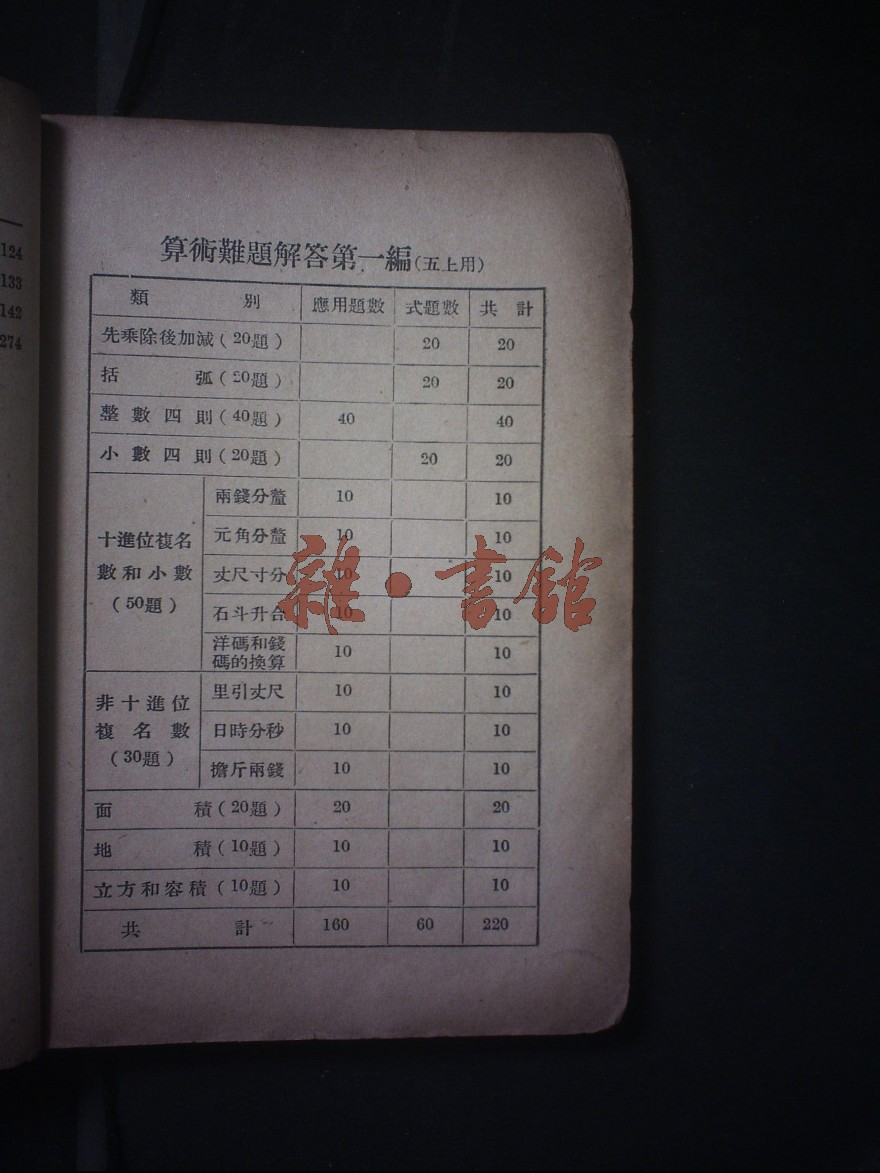 124
133
142
274
算術難題解答第一編(五上用)
類 別 應用題數 式題數 共 計
先乘除後加減(20題) 20 20
括 弧(20題) 20 20
整 數 四 則(40題) 40 40
小 數 四 則(20題) 20 20
十進位複名數和小數(50題)
兩錢分釐 10 10
元角分釐 10 10
丈尺寸分 10 10
石斗升合 10 10
洋碼和錢碼的換算 10 10
非十進位複名數(30題)
里引丈尺 10 10
日時分秒 10 10
擔斤兩錢 10 10
面 積(20題) 20 20
地 積(10題) 10 10
立方和容積(10題) 10 10
共 計 160 60 220
雜·書館